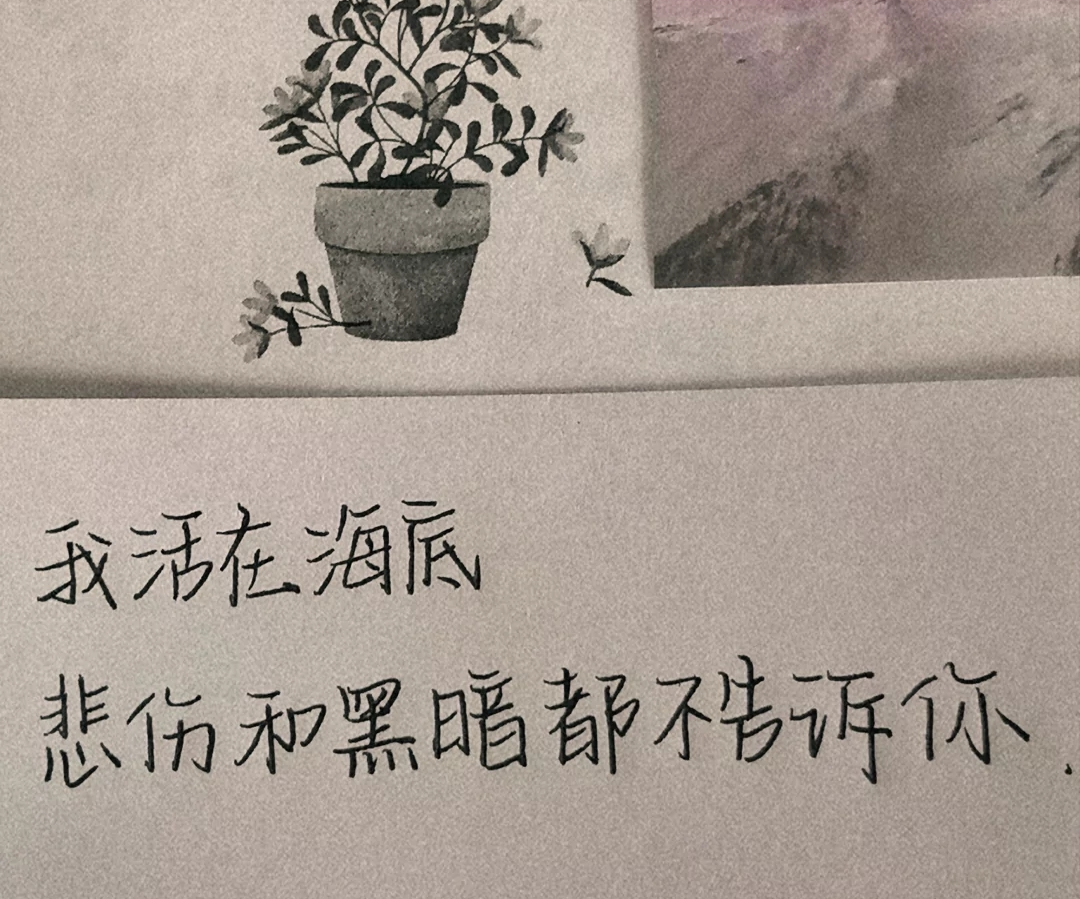 我活在海底
悲伤和黑暗都不告诉你.